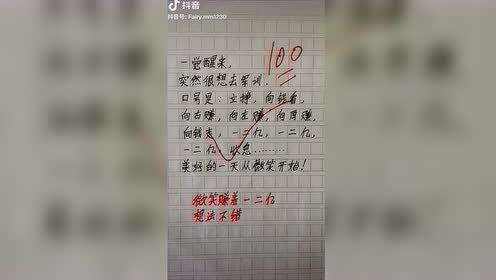 抖音
抖音号: Fairy.mm1230
100
一觉醒来,
突然很想去军训.
口号是: 立挣, 向钱看,
向右赚, 向左赚, 向后赚,
向钱走, 一二亿, 一二亿,
一二亿, 收息………
美好的一天从微笑开始!
微笑赚着一二亿
想法不错